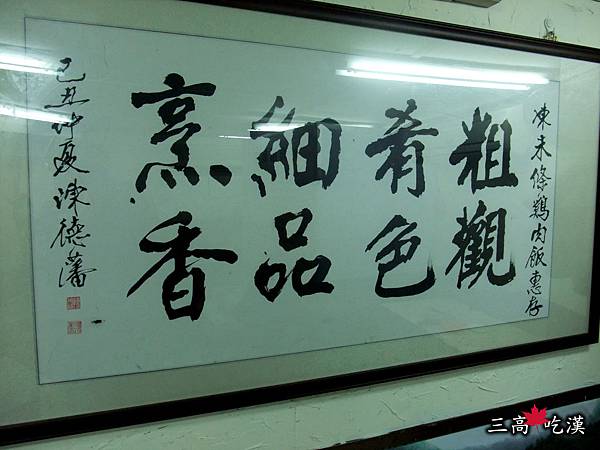 凍未條鷄肉飯惠存
粗觀
肴色
細品
烹香
己丑仲夏陳德藩
三高 吃漢